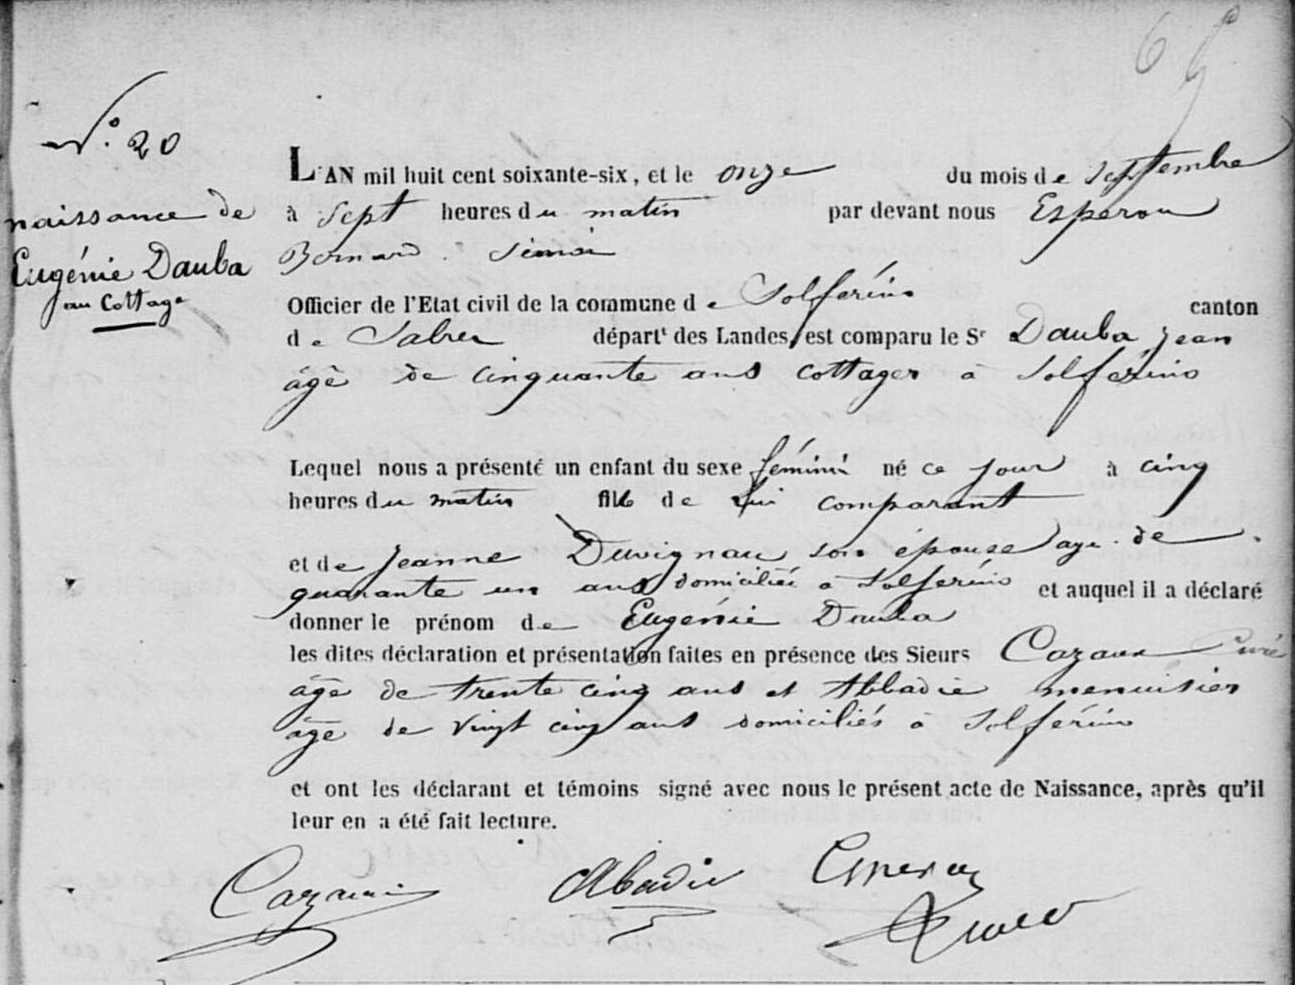 65
N.° 20
naissance de
Eugénie Dauba
au Cottage
L'AN mil huit cent soixante-six, et le onze du mois de Septembre
à Sept heures du matin par devant nous Espérou
Bernard
Officier de l'Etat civil de la commune de Solférino canton
de Sabres départt des Landes, est comparu le Sr Dauba Jean
âgé de cinquante ans cottager à Solférino
Lequel nous a présenté un enfant du sexe féminin né ce jour à cinq
heures du matin fille de lui comparant
et de Jeanne Duvignau son épouse agé de
quarante un ans domiciliée à Solférino et auquel il a déclaré
donner le prénom de Eugénie Dauba
les dites déclaration et présentation faites en présence des Sieurs Cazaux Curé
âgé de trente cinq ans et Abbadie menuisier
âgé de vingt cinq ans domiciliés à Solférino
et ont les déclarant et témoins signé avec nous le présent acte de Naissance, après qu'il
leur en a été fait lecture.
Cazaux Abadie Esperou